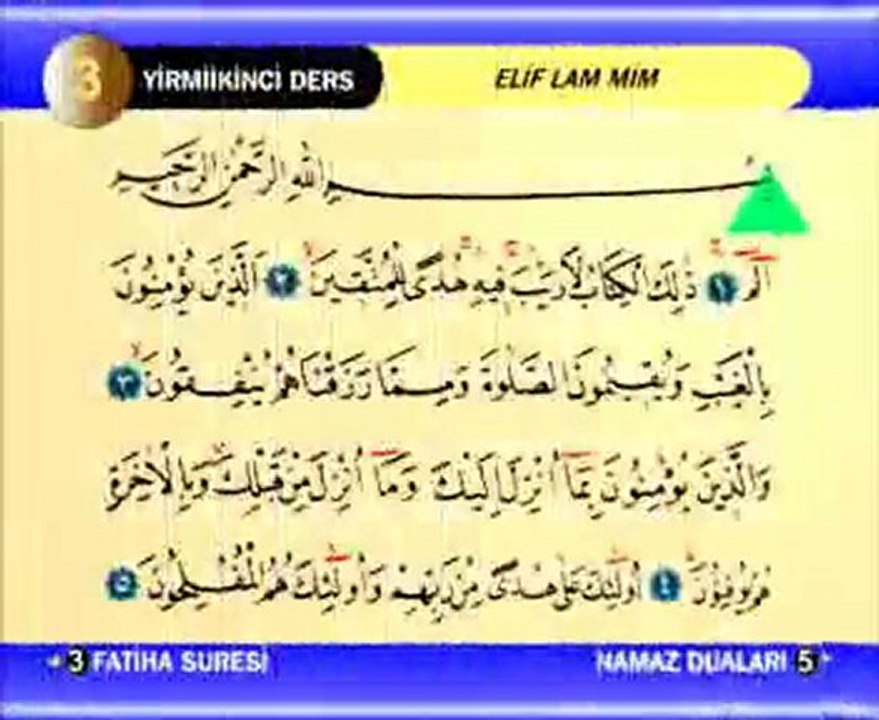 3 YİRMİİKİNCİ DERS ELİF LAM MİM
بِسْمِ اللهِ الرَّحْمٰنِ الرَّحِيمِ
الٓمٓ ﴿١﴾ ذٰلِكَ الْكِتَابُ لَا رَيْبَ فِيهِ هُدًى لِلْمُتَّقِينَ ﴿٢﴾ اَلَّذِينَ يُؤْمِنُونَ
بِالْغَيْبِ وَيُقِيمُونَ الصَّلٰوةَ وَمِمَّا رَزَقْنَاهُمْ يُنْفِقُونَ ﴿٣﴾
وَالَّذِينَ يُؤْمِنُونَ بِمَٓا اُنْزِلَ اِلَيْكَ وَمَٓا اُنْزِلَ مِنْ قَبْلِكَ وَبِالْاٰخِرَةِ
هُمْ يُوقِنُونَ ﴿٤﴾ اُولٰٓئِكَ عَلٰى هُدًى مِنْ رَبِّهِمْ وَاُولٰٓئِكَ هُمُ الْمُفْلِحُونَ ﴿٥﴾
3 FATİHA SURESİ NAMAZ DUALARI 5